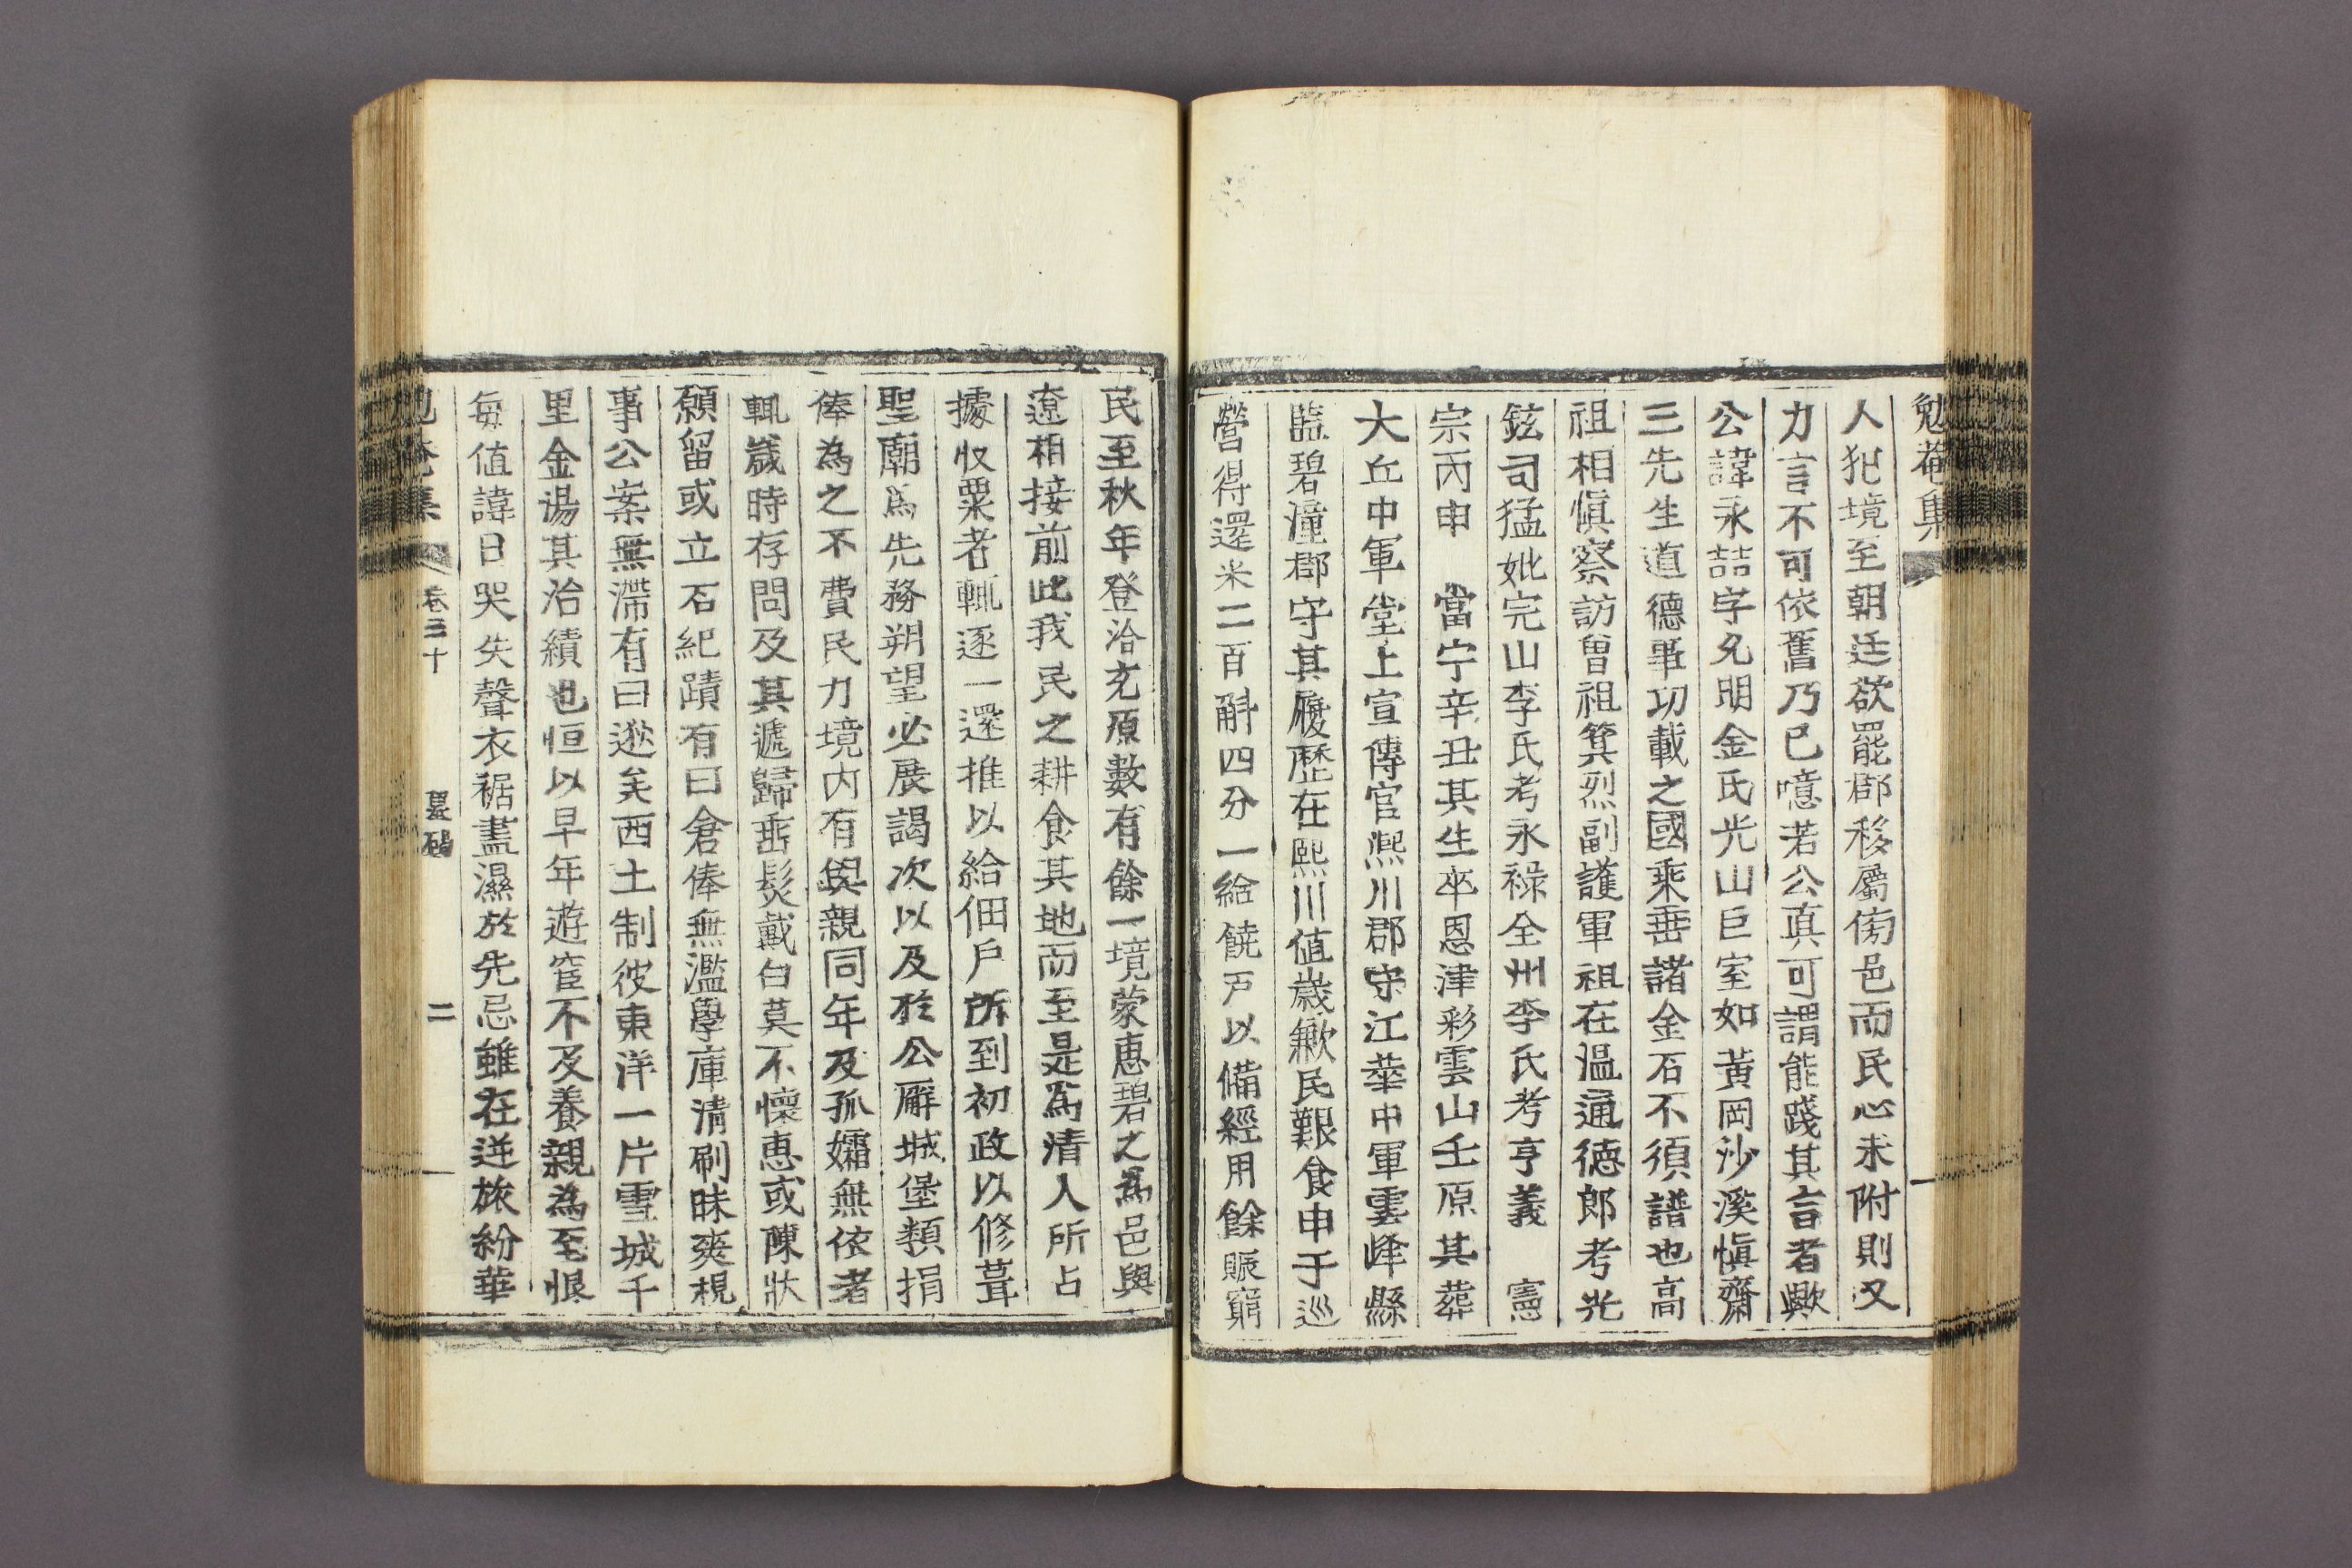 勉菴集
人犯境至朝廷欲罷郡移屬傍邑而民心未附則又
力言不可依舊乃已噫若公真可謂能踐其言者歟
公諱永喆字允明金氏光山巨室如黃岡沙溪愼齋
三先生道德事功載之國乘垂諸金石不須譜也高
祖相愼察訪曾祖箕烈副護軍祖在溫通德郎考光
鉉司猛妣完山李氏考永祿全州李氏考亨義　憲
宗丙申　當宁辛丑其生卒恩津彩雲山壬原其葬
大丘中軍堂上宣傳官熙川郡守江華中軍雲峰縣
監碧潼郡守其履歷在熙川値歲歉民艱食申于巡
營得還米二百斛四分一給饒戶以備經用餘賑窮
民至秋年登洽充原數有餘一境蒙惠碧之爲邑與
遼相接前此我民之耕食其地而至是爲清人所占
據收粟者輒逐一還推以給佃戶所到初政以修葺
聖廟爲先務朔望必展謁次以及於公廨城堡類捐
俸為之不費民力境内有與親同年及孤孀無依者
輒歲時存問及其遞歸垂髮戴白莫不懷惠或陳狀
願留或立石紀蹟有曰倉俸無濫學庫清刷昧爽視
事公案無滯有曰逖矣西土制彼東洋一片雪城千
里金湯其治績也恒以早年遊宦不及養親為至恨
每值諱日哭失聲衣裾盡濕於先忌雖在逆旅紛華
勉菴集　卷三十　墓碣　二